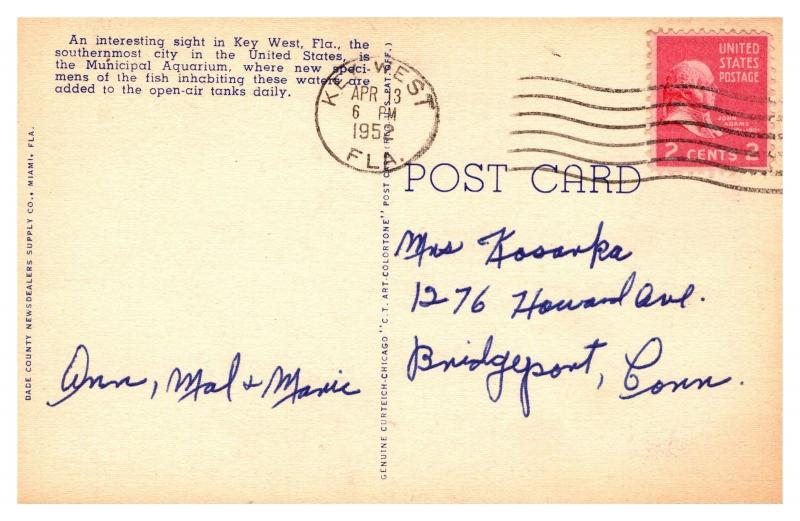 An interesting sight in Key West, Fla., the
southernmost city in the United States, is
the Municipal Aquarium, where new speci-
mens of the fish inhabiting these waters are
added to the open-air tanks daily.
KEY WEST
APR 13
6 PM
1952
FLA.
UNITED
STATES
POSTAGE
JOHN
ADAMS
2 CENTS 2
POST CARD
DADE COUNTY NEWSDEALERS SUPPLY CO., MIAMI, FLA.
GENUINE CURTEICH-CHICAGO "C.T. ART-COLORTONE" POST CARD (REG. U.S. PAT. OFF.)
Mrs Kosarka
1276 Howard Ave.
Bridgeport, Conn.
Ann, Mal & Marie